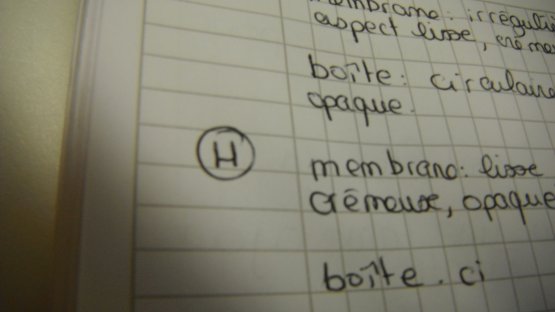 membrane: irréguliè
aspect lisse, crémeu
boîte: circulaire
opaque.
H
membrane: lisse
crémeuse, opaque
boîte. ci